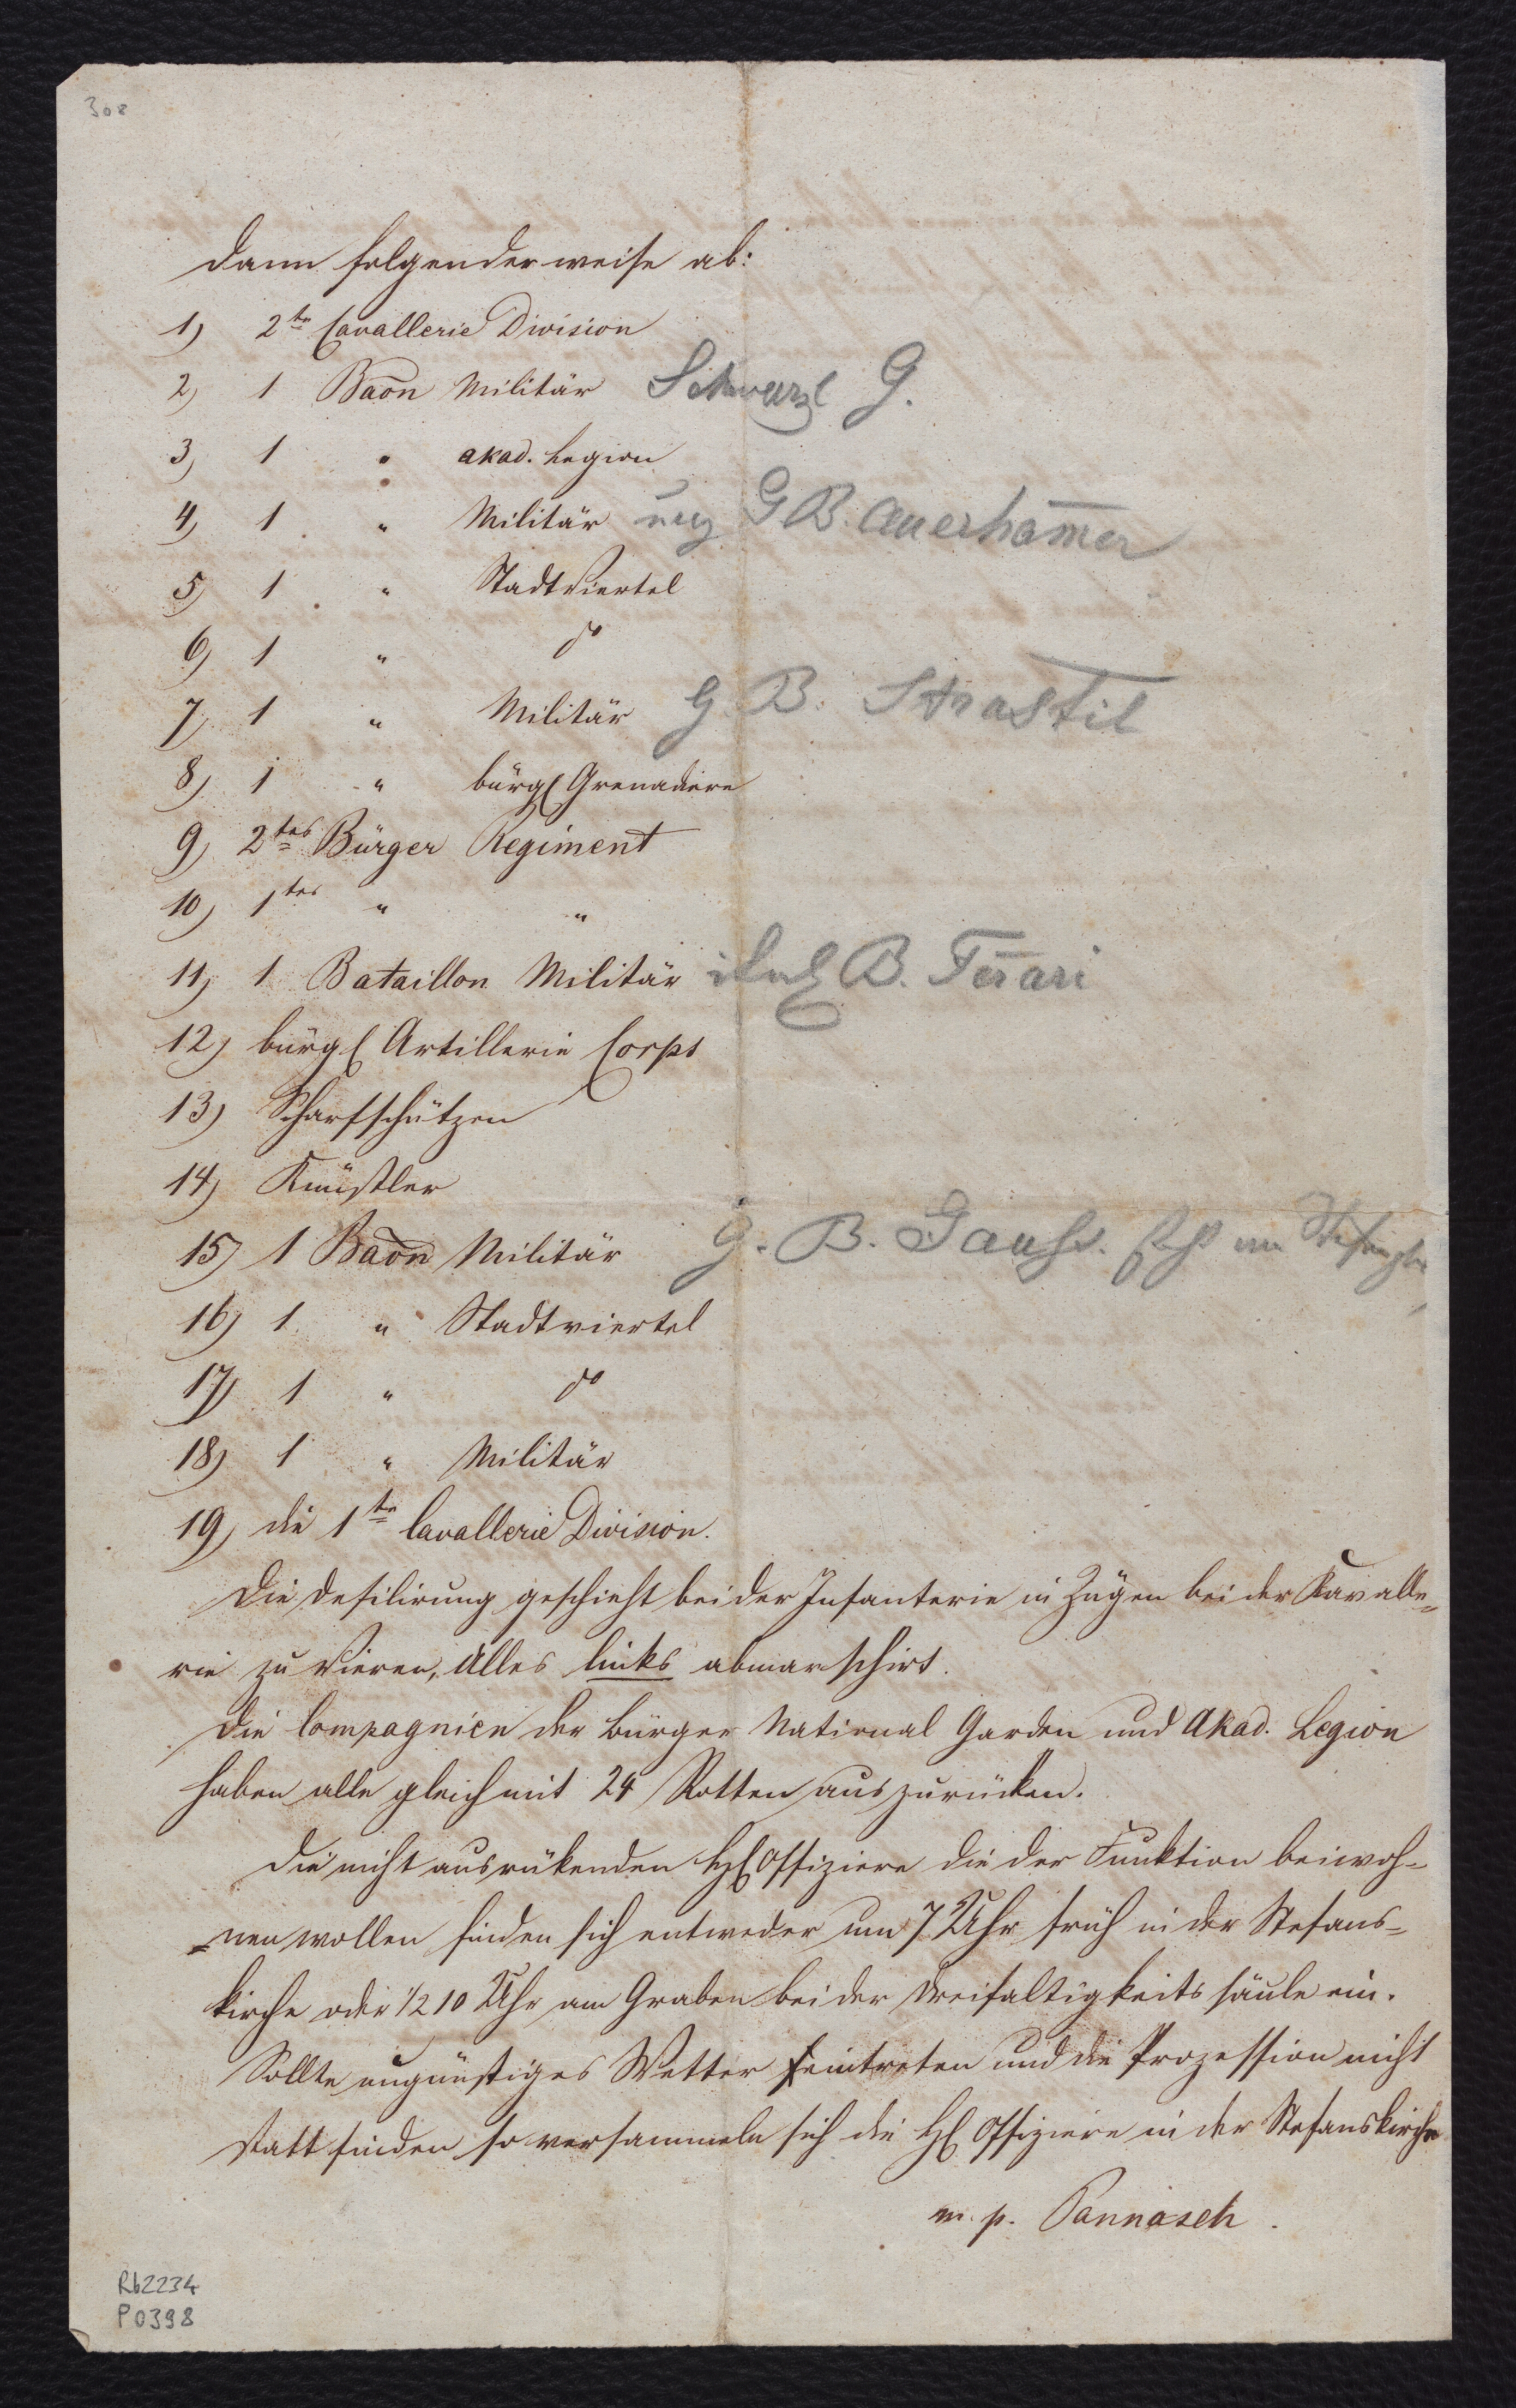 308
dann folgenderweise ab:
1) 2te Cavallerie Division
2) 1 Baōn Militär Schwarzl G.
3) 1 " akad. Legion
4) 1 " Militär ung G B. Auerham̄er
5) 1 " Stadtviertel
6) 1 " do
7) 1 " Militär G. B. Strastil
8) 1 " bürgl Grenadiere
9) 2tes Bürger Regiment
10) 1tes " "
11) 1 Bataillon Militär ital G B. Fer̄ari
12) bürgl Artillerie Corps
13) Scharfschützen
14) Künstler
15) 1 Baōn Militär G. B.
16) 1 " Stadtviertel
17) 1 " do
18) 1 " Militär
19) die 1te Cavallerie Division.
Die Defilirung geschieht bei der Infanterie in Zügen bei der Kavalle=
rie zu Vieren, Alles links abmarschirt.
Die Compagnien der Bürger National Garden und Akad. Legion
haben alle gleich mit 24 Rotten auszurücken.
Die nicht ausrükenden HH Offiziere die der Funktion beiwoh=
=nen wollen finden sich entweder um 7 Uhr früh in der Stefans=
kirche oder 1/2 10 Uhr am Graben bei der Dreifaltigkeits säule ein.
Sollte ungünstiges Wetter eintreten und die Prozession nicht
statt finden so versammeln sich die HH Offiziere in der Stefanskirche
m. p. Pannasch.
Rb2234
P0398